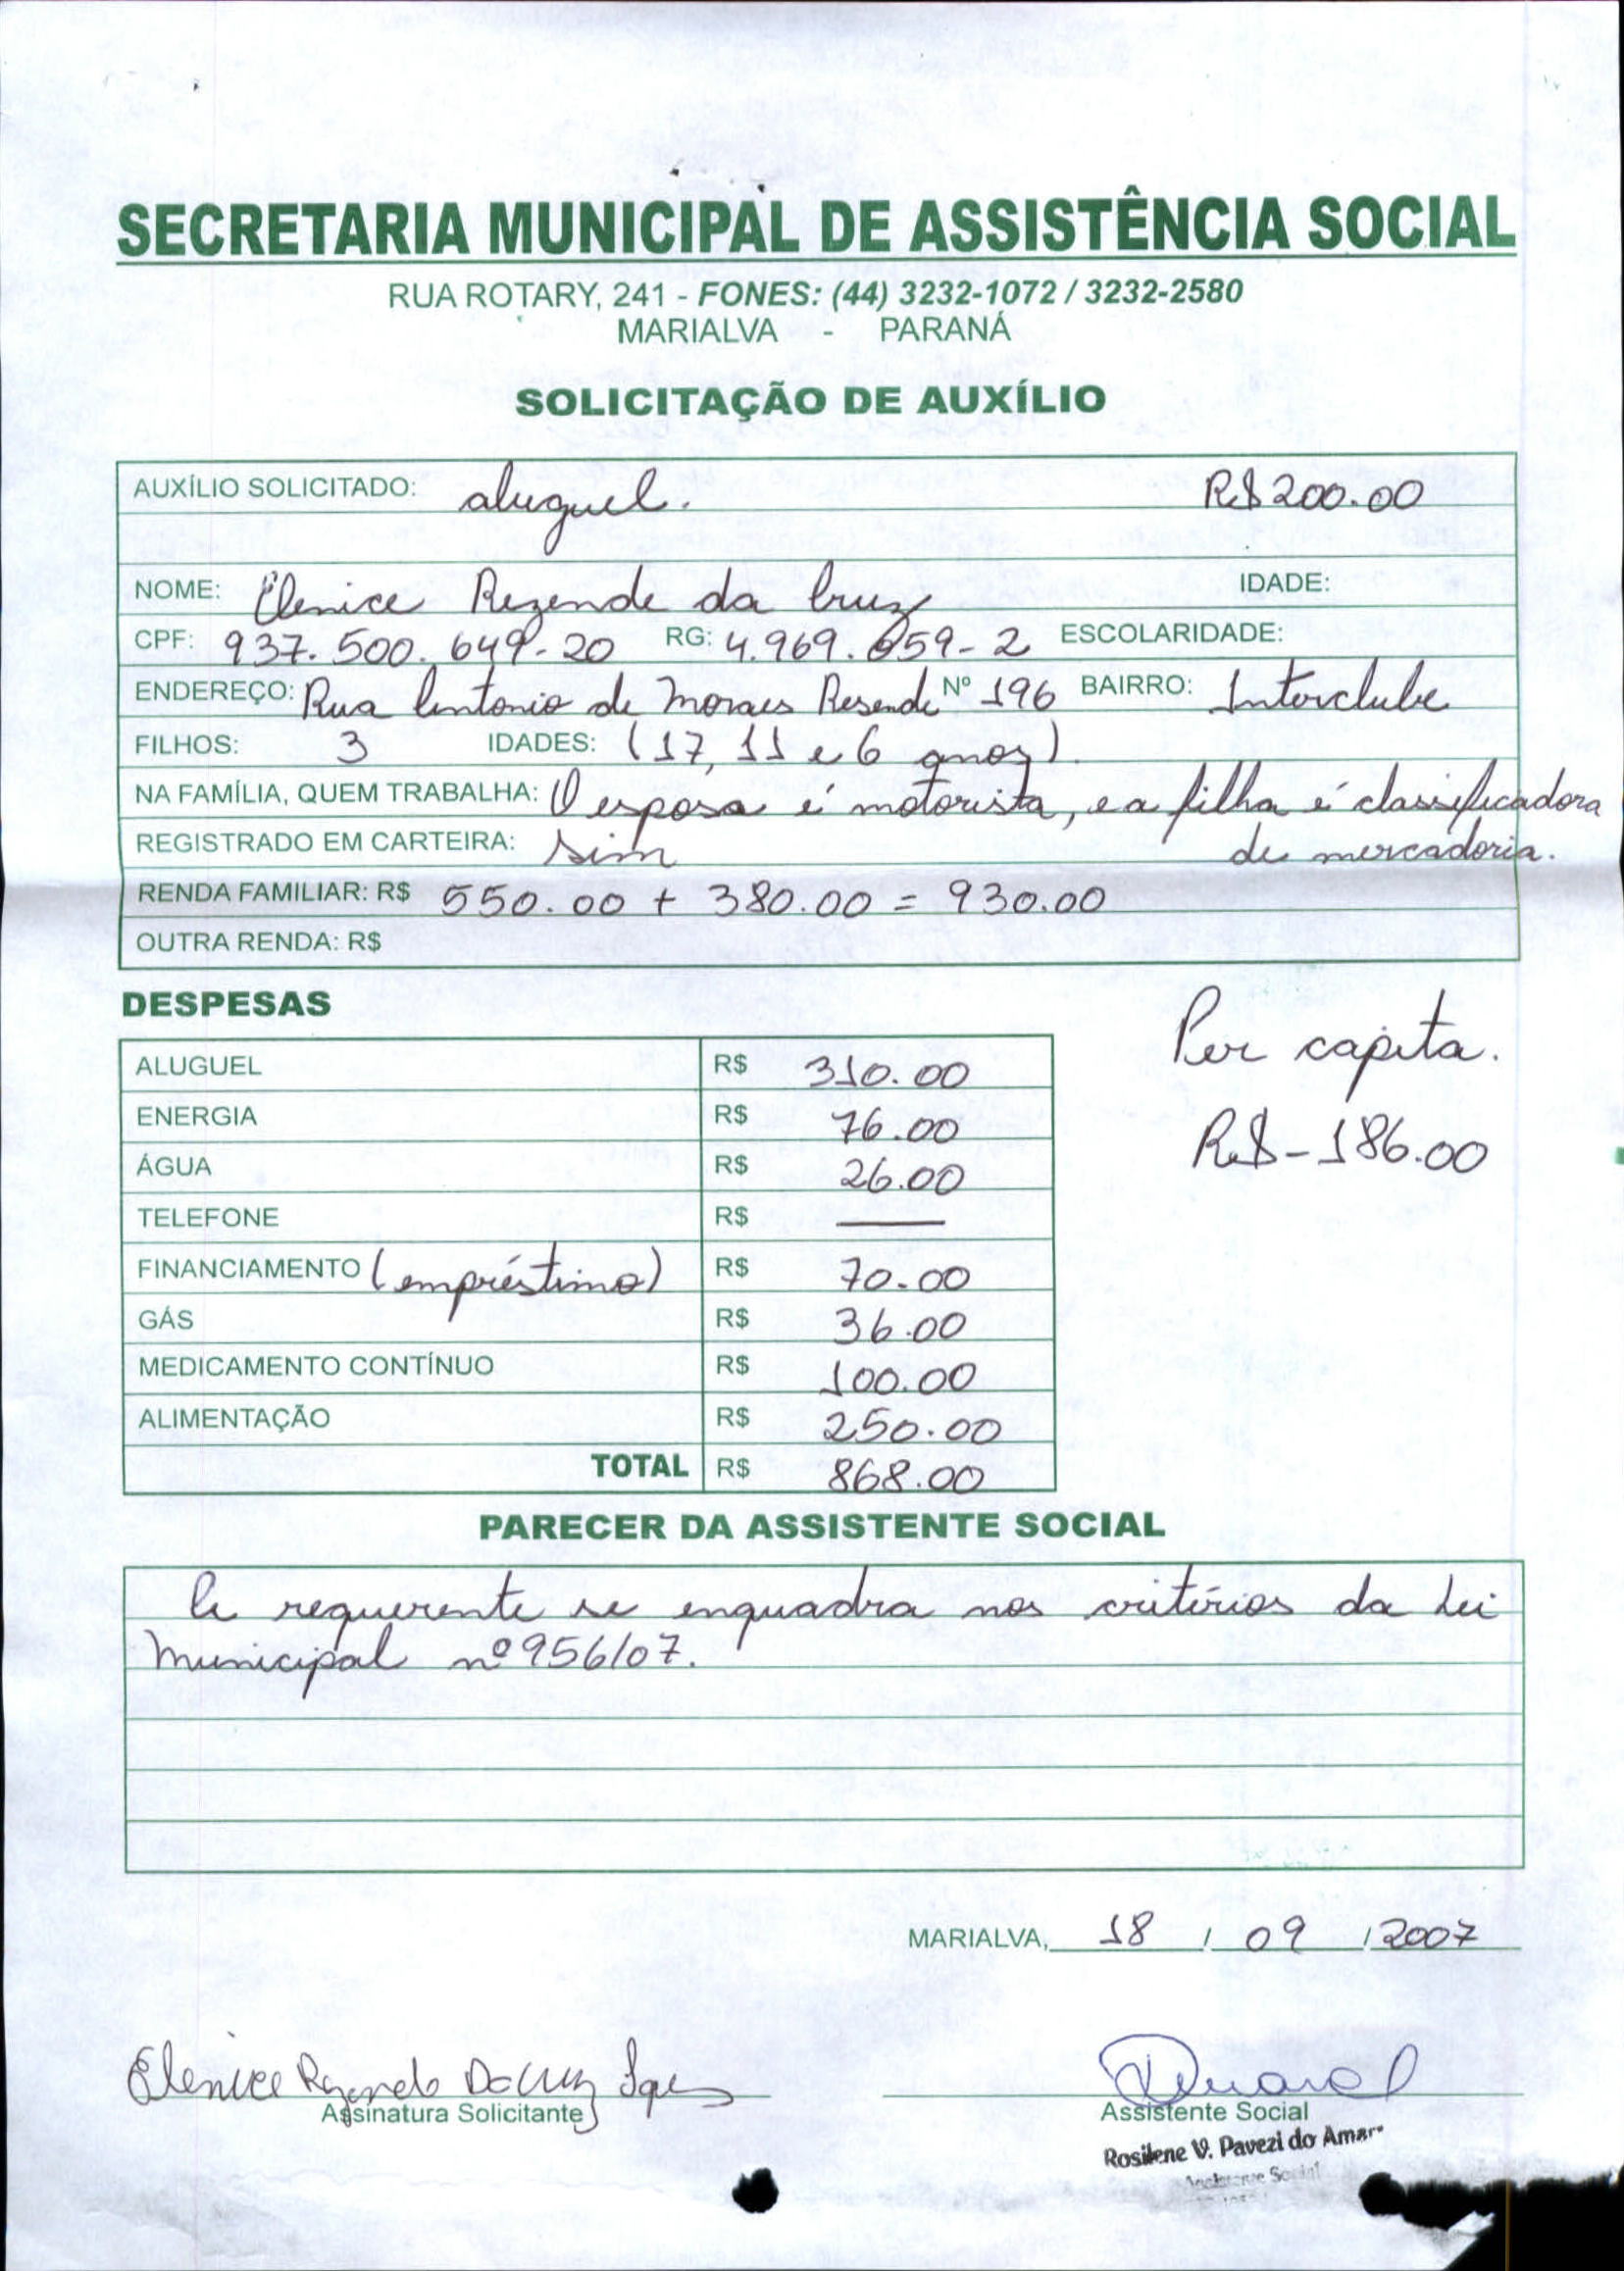 SECRETARIA MUNICIPAL DE ASSISTÊNCIA SOCIAL
RUA ROTARY, 241 - FONES: (44) 3232-1072 / 3232-2580
MARIALVA - PARANÁ
SOLICITAÇÃO DE AUXÍLIO
AUXÍLIO SOLICITADO: aluguel. R$ 200.00
NOME: Elenice Rezende da Cruz IDADE:
CPF: 937.500.649-20 RG: 4.969.659-2 ESCOLARIDADE:
ENDEREÇO: Rua Antonio de Moraes Resende Nº 196 BAIRRO: Interclube
FILHOS: 3 IDADES: (17, 11 e 6 anos).
NA FAMÍLIA, QUEM TRABALHA: O esposo é motorista, e a filha é classificadora
REGISTRADO EM CARTEIRA: sim de mercadoria.
RENDA FAMILIAR: R$ 550.00 + 380.00 = 930.00
OUTRA RENDA: R$
DESPESAS
Per capita.
R$ - 186.00
ALUGUEL R$ 310.00
ENERGIA R$ 76.00
ÁGUA R$ 26.00
TELEFONE R$ ———
FINANCIAMENTO (empréstimo) R$ 70.00
GÁS R$ 36.00
MEDICAMENTO CONTÍNUO R$ 100.00
ALIMENTAÇÃO R$ 250.00
TOTAL R$ 868.00
PARECER DA ASSISTENTE SOCIAL
A requerente se enquadra nos critérios da Lei
Municipal nº 956/07.
MARIALVA, 18 / 09 / 2007
Elenice Rezende Da Cruz
Assinatura Solicitante
Assistente Social
Rosilene V. Pavezi do Amar
Assistente Social